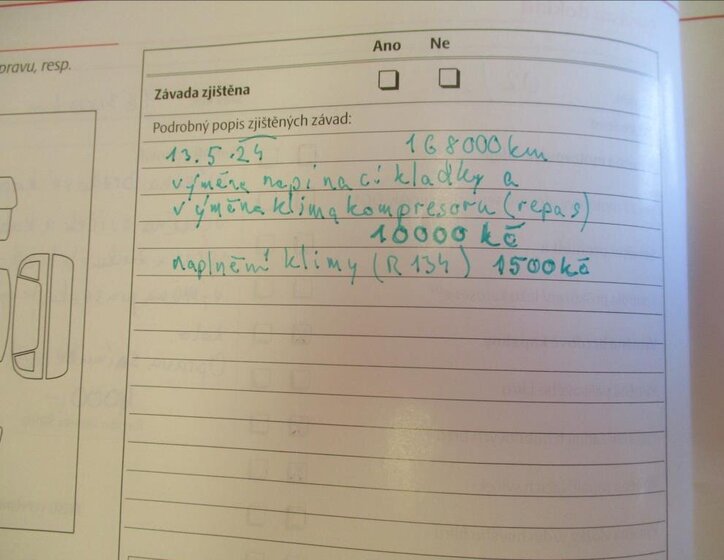 pravu, resp.
Ano Ne
Závada zjištěna
Podrobný popis zjištěných závad:
13.5.24 168000km
výměna napínací kladky a
výměna klima kompresoru (repas)
10000 kč
naplnění klimy (R134) 1500kč